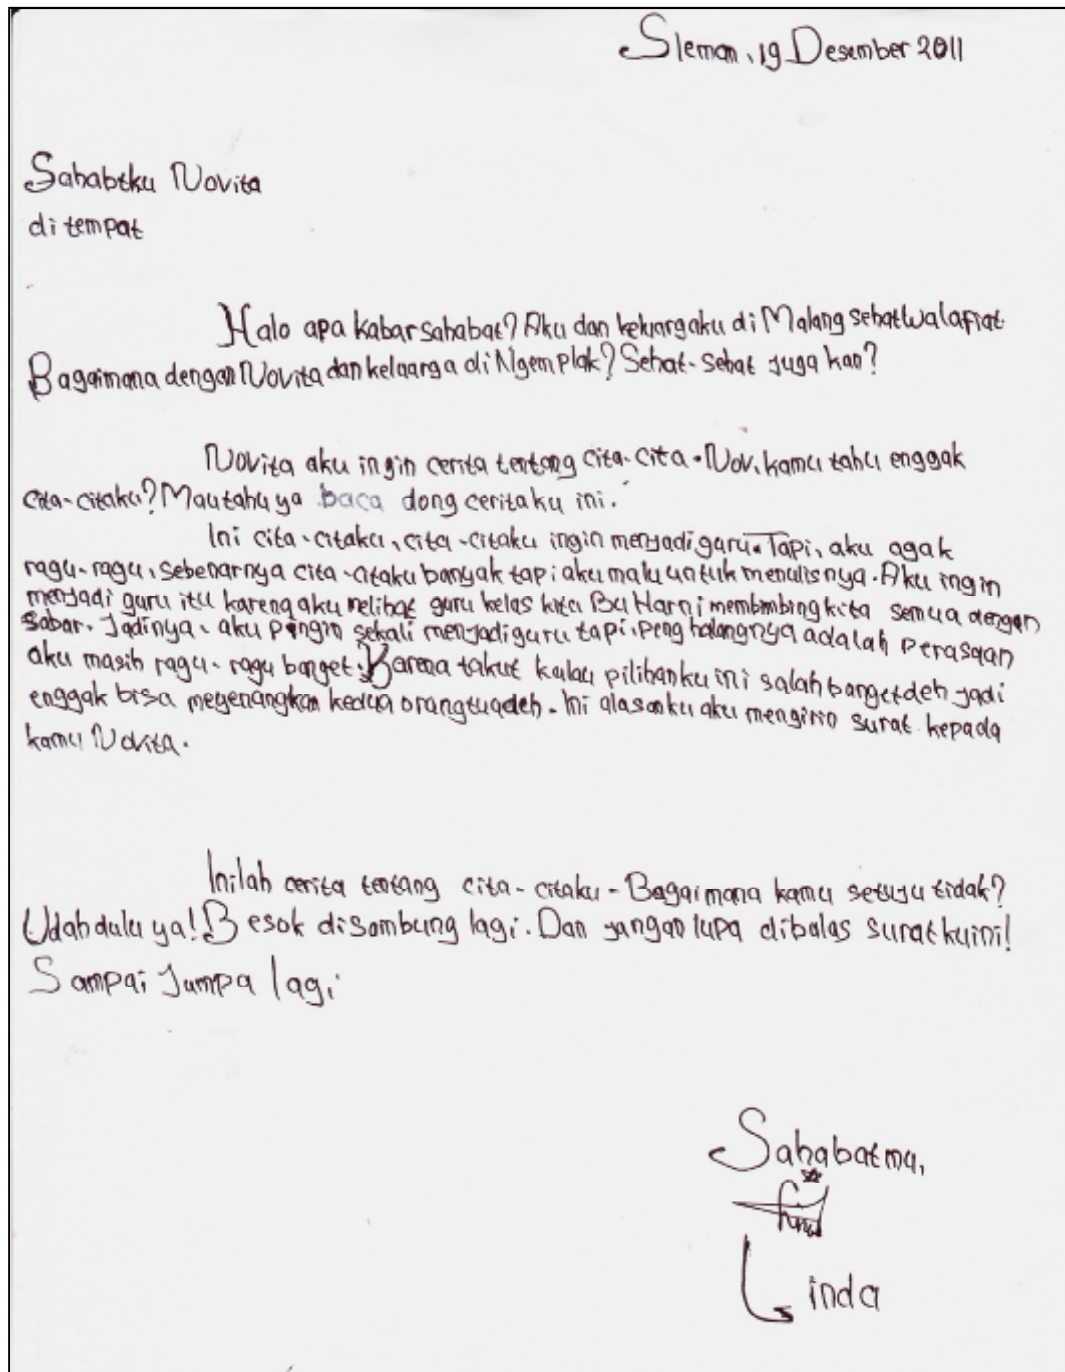 Sleman, 19 Desember 2011
Sahabtku Novita
di tempat
Halo apa kabar sahabat? Aku dan keluargaku di Malang sehat walafiat
Bagaimana dengan Novita dan keluarga di Ngemplak? Sehat-sehat juga kan?
Novita aku ingin cerita tentang cita-cita. Nov, kamu tahu enggak
cita-citaku? Mau tahu ya baca dong ceritaku ini.
Ini cita-citaku, cita-citaku ingin menjadi guru. Tapi, aku agak
ragu-ragu, sebenarnya cita-citaku banyak tapi aku malu untuk menulisnya. Aku ingin
menjadi guru itu karena aku melihat guru kelas kita Bu Harni membimbing kita semua dengan
sabar. Jadinya, aku pingin sekali menjadi guru tapi, penghalangnya adalah perasaan
aku masih ragu-ragu banget. Karena takut kalau pilihanku ini salah banget deh jadi
enggak bisa meyenangkan kedua orangtua deh. Ini alasanku aku mengirin surat kepada
kamu Novita.
Inilah cerita tentang cita-citaku - Bagaimana kamu setuju tidak?
Udah dulu ya! Besok disambung lagi. Dan jangan lupa dibalas suratku ini!
Sampai Jumpa lagi
Sahabatmu,
Linda